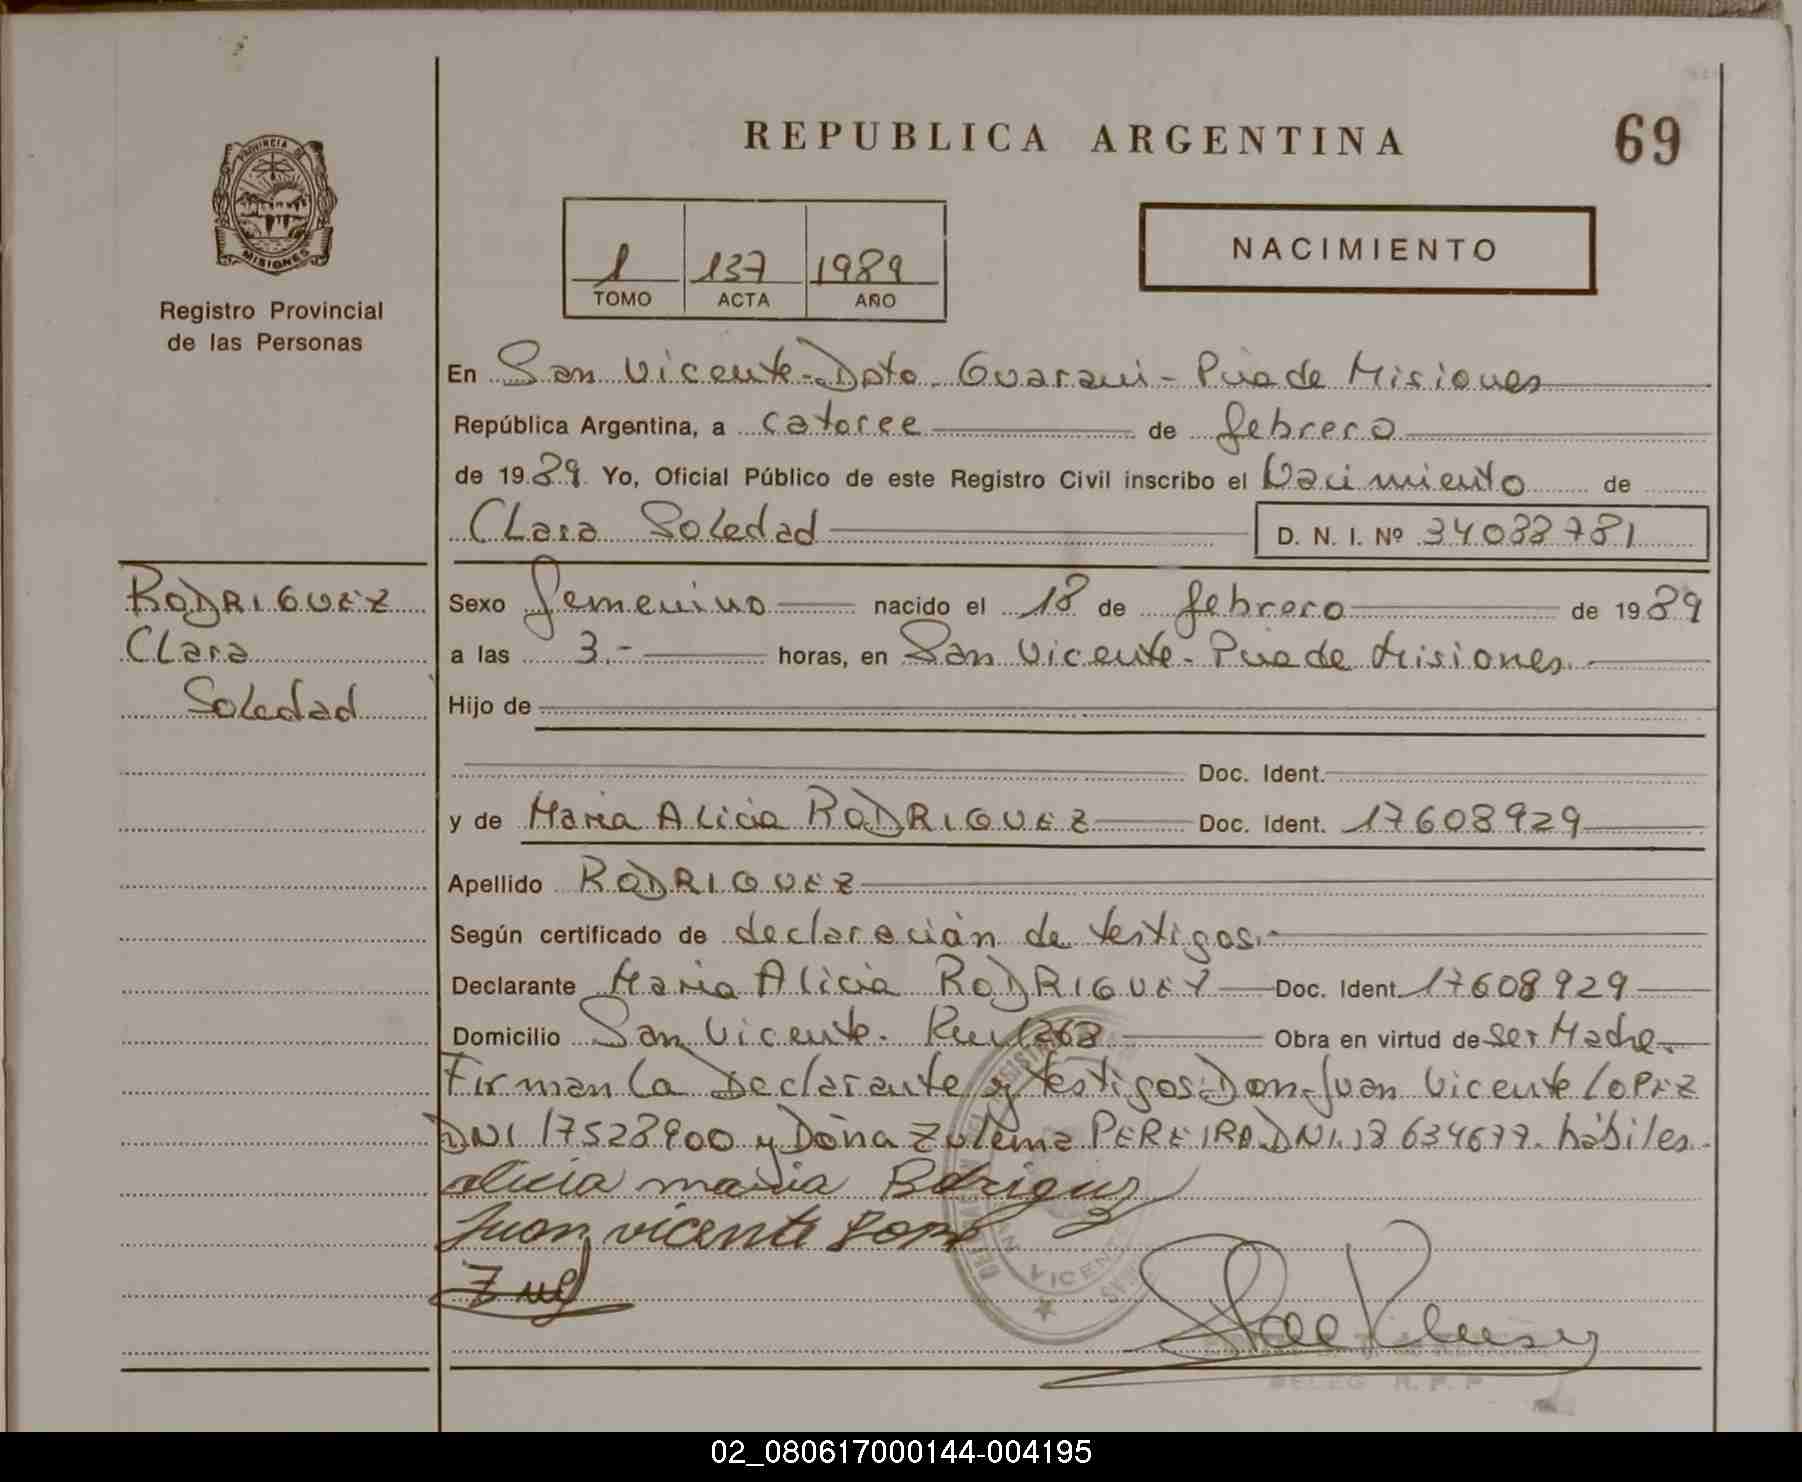 REPUBLICA ARGENTINA
69
PROVINCIA DE
MISIONES
Registro Provincial
de las Personas
1 137 1989
TOMO ACTA AÑO
NACIMIENTO
En San Vicente - Dpto. Guarani - Pcia de Misiones
República Argentina, a catorce de febrero
de 1989 Yo, Oficial Público de este Registro Civil inscribo el Nacimiento de
Clara Soledad D. N. I. Nº 34088781
RODRIGUEZ
Clara
Soledad
Sexo femenino nacido el 18 de febrero de 1989
a las 3.- horas, en San Vicente - Pcia de Misiones.
Hijo de
Doc. Ident.
y de Maria Alicia RODRIGUEZ Doc. Ident. 17608929
Apellido RODRIGUEZ
Según certificado de declaración de testigos.-
Declarante Maria Alicia RODRIGUEZ Doc. Ident. 17608929
Domicilio San Vicente. Km 1268 Obra en virtud de ser Madre.
Firman la Declarante y testigos: Don Juan Vicente LOPEZ
DNI 17528900 y Doña Zulema PEREIRA DNI. 18634677. hábiles.
alicia maria Rodriguez
Juan vicente Lopez
VICENTE
DELEG R. P. P
02_080617000144-004195